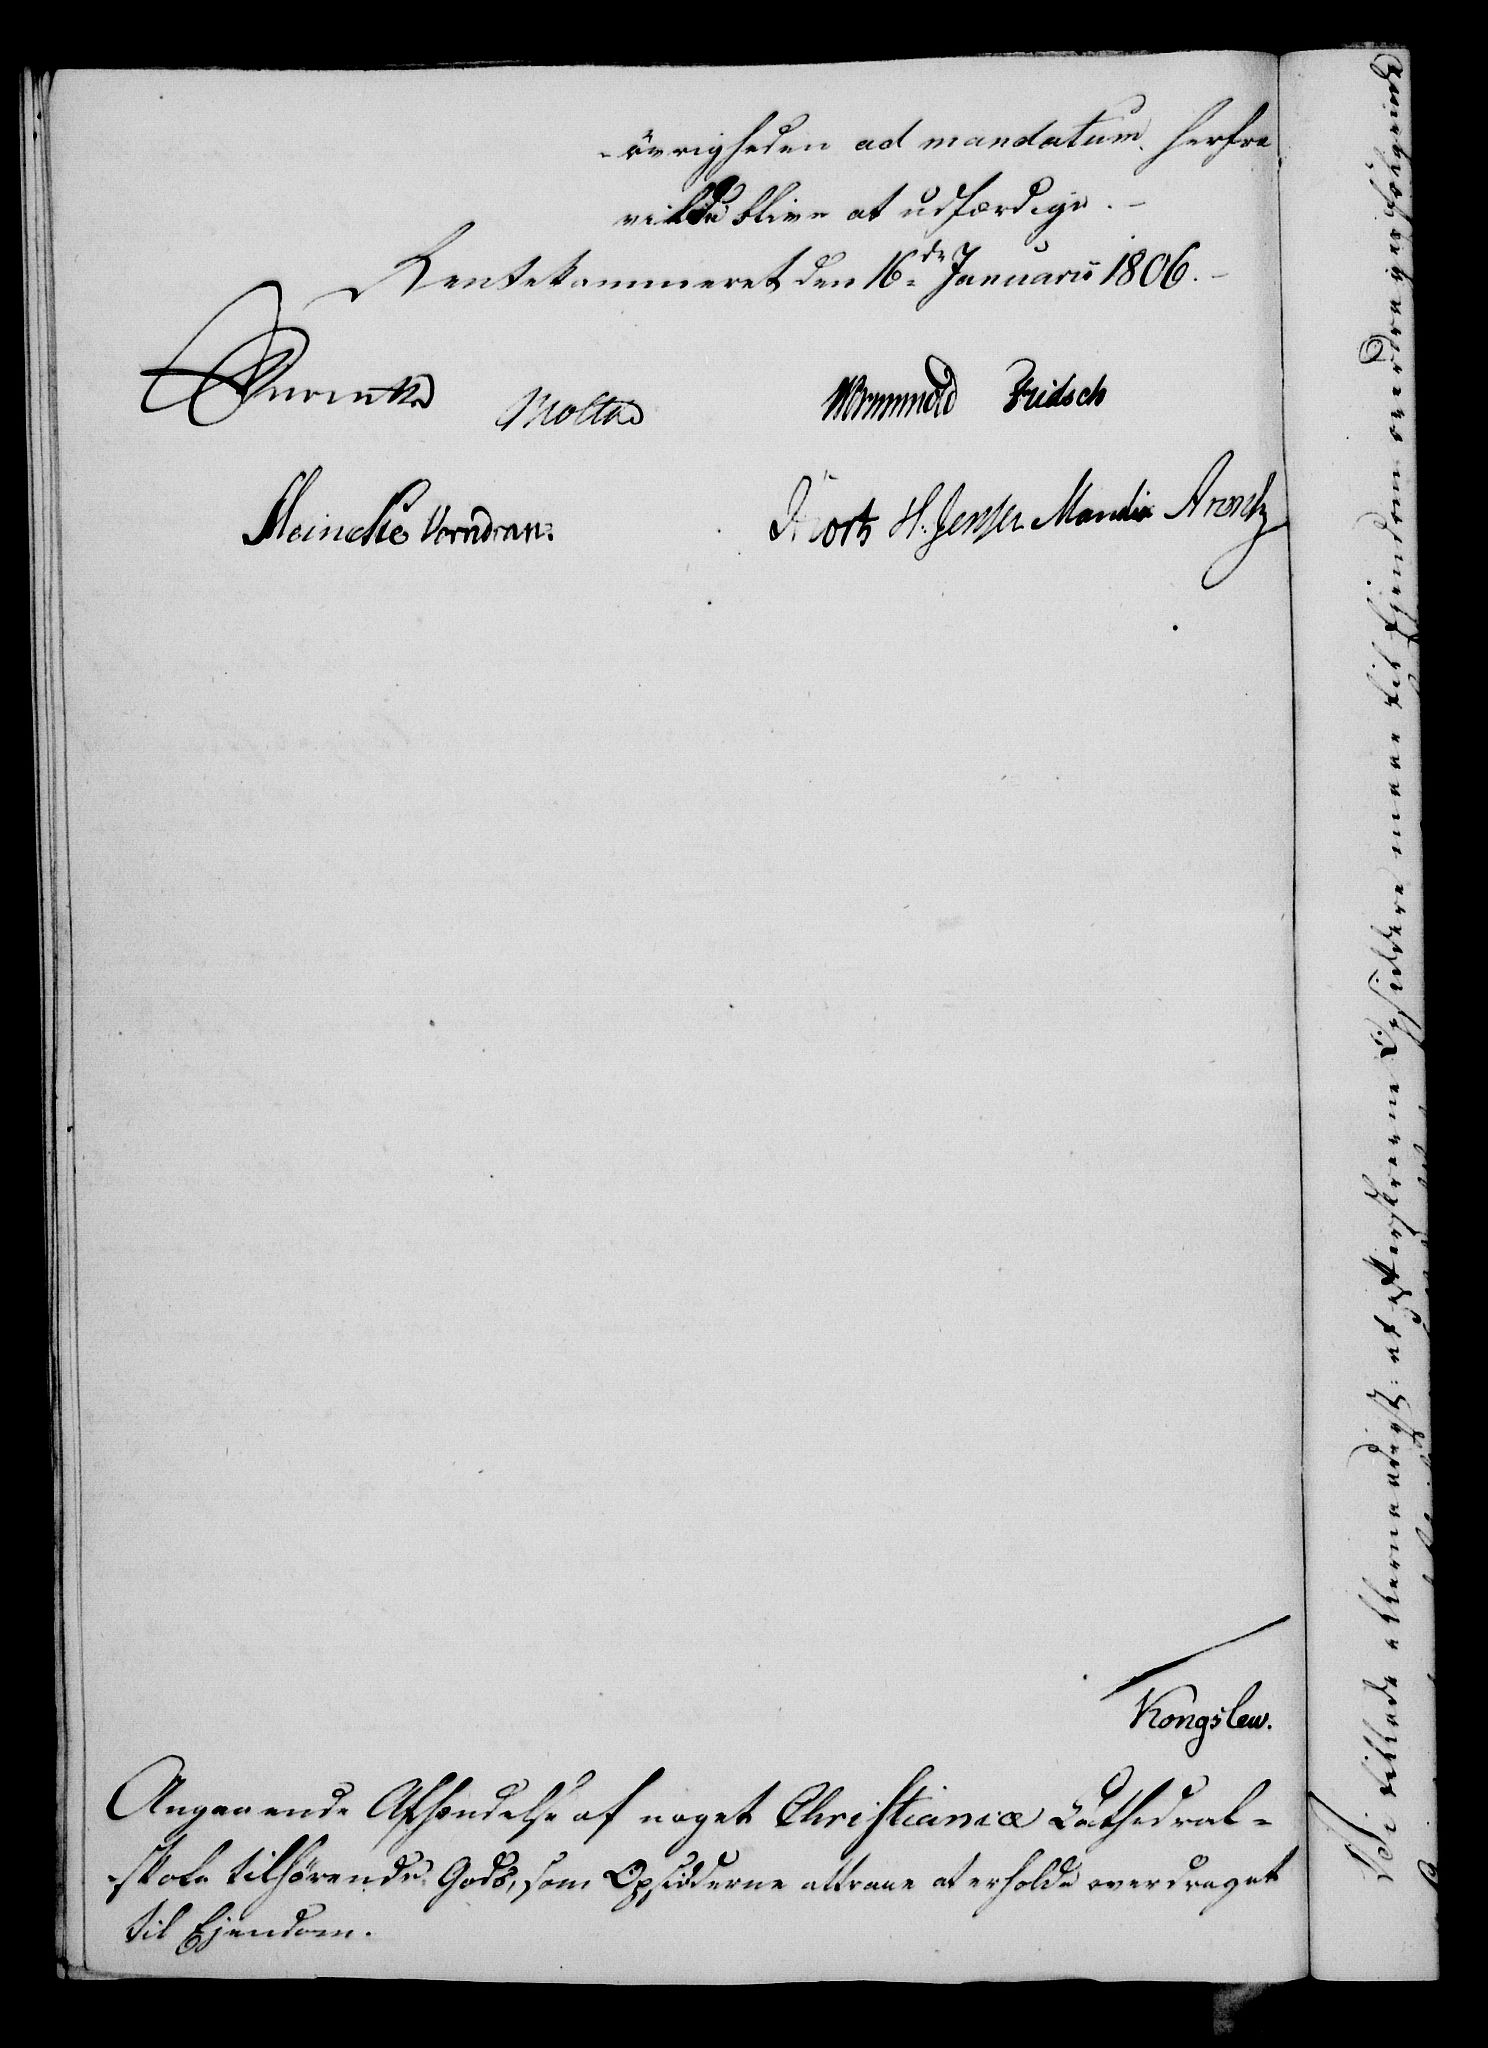 -övrigheden ad mandatum herfra
vilde blive at udfærdige. -
Rentekammeret den 16de Januarii 1806. -
Moltke Wormskiold Fridsch
Meincke Verndran: H. Jensen Manthey Arentz
Kongslew.
Angaaende Afhændelse af noget Christianiæ Cathedral-
-skole tilhørende Gods, som Opsidderne attraae at erholde overdraget
til Ejendom.
Vi tillade allernaadigst: at Opsiddere maae til Ejendom overdrages følgende